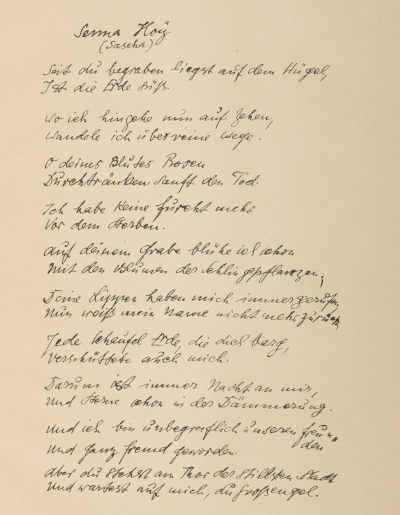 Senna Hoÿ
(Sascha)
Seit du begraben liegst auf dem Hügel,
Ist die Erde süß.
Wo ich hingehe nun auf Zehen,
Wandele ich über reine Wege.
O deines Blutes Rosen
Durchtränken sanft den Tod.
Ich habe keine Furcht mehr
Vor dem Sterben.
Auf deinem Grabe blühe ich schon
Mit den Blumen der Schlingpflanzen;
Deine Lippen haben mich immer gerufen,
Nun weiß mein Name nicht mehr zurück.
Jede Schaufel Erde, die dich barg,
Verschüttete auch mich.
Darum ist immer Nacht an mir,
Und Sterne schon in der Dämmerung.
Und ich bin unbegreiflich unseren Freun=
den
Und ganz fremd geworden.
Aber du stehst am Thor der stillsten Stadt
Und wartest auf mich, du Großengel.